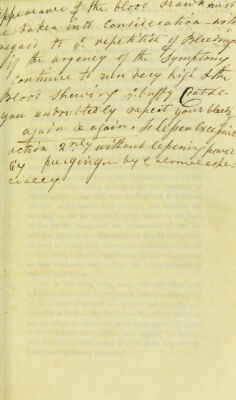 appearance of the blood drawn must
be taken into consideration - with
regard to ye repetition of Bleeding
if the urgency of the Symptoms
continue to run very high & the
Blood shewing ye buffy Coat &c
you undoubtedly repeat your bleedg
again & again. To lessen Excessive
action 2nly without lessening power
by purging & by Calomel espe-
cially